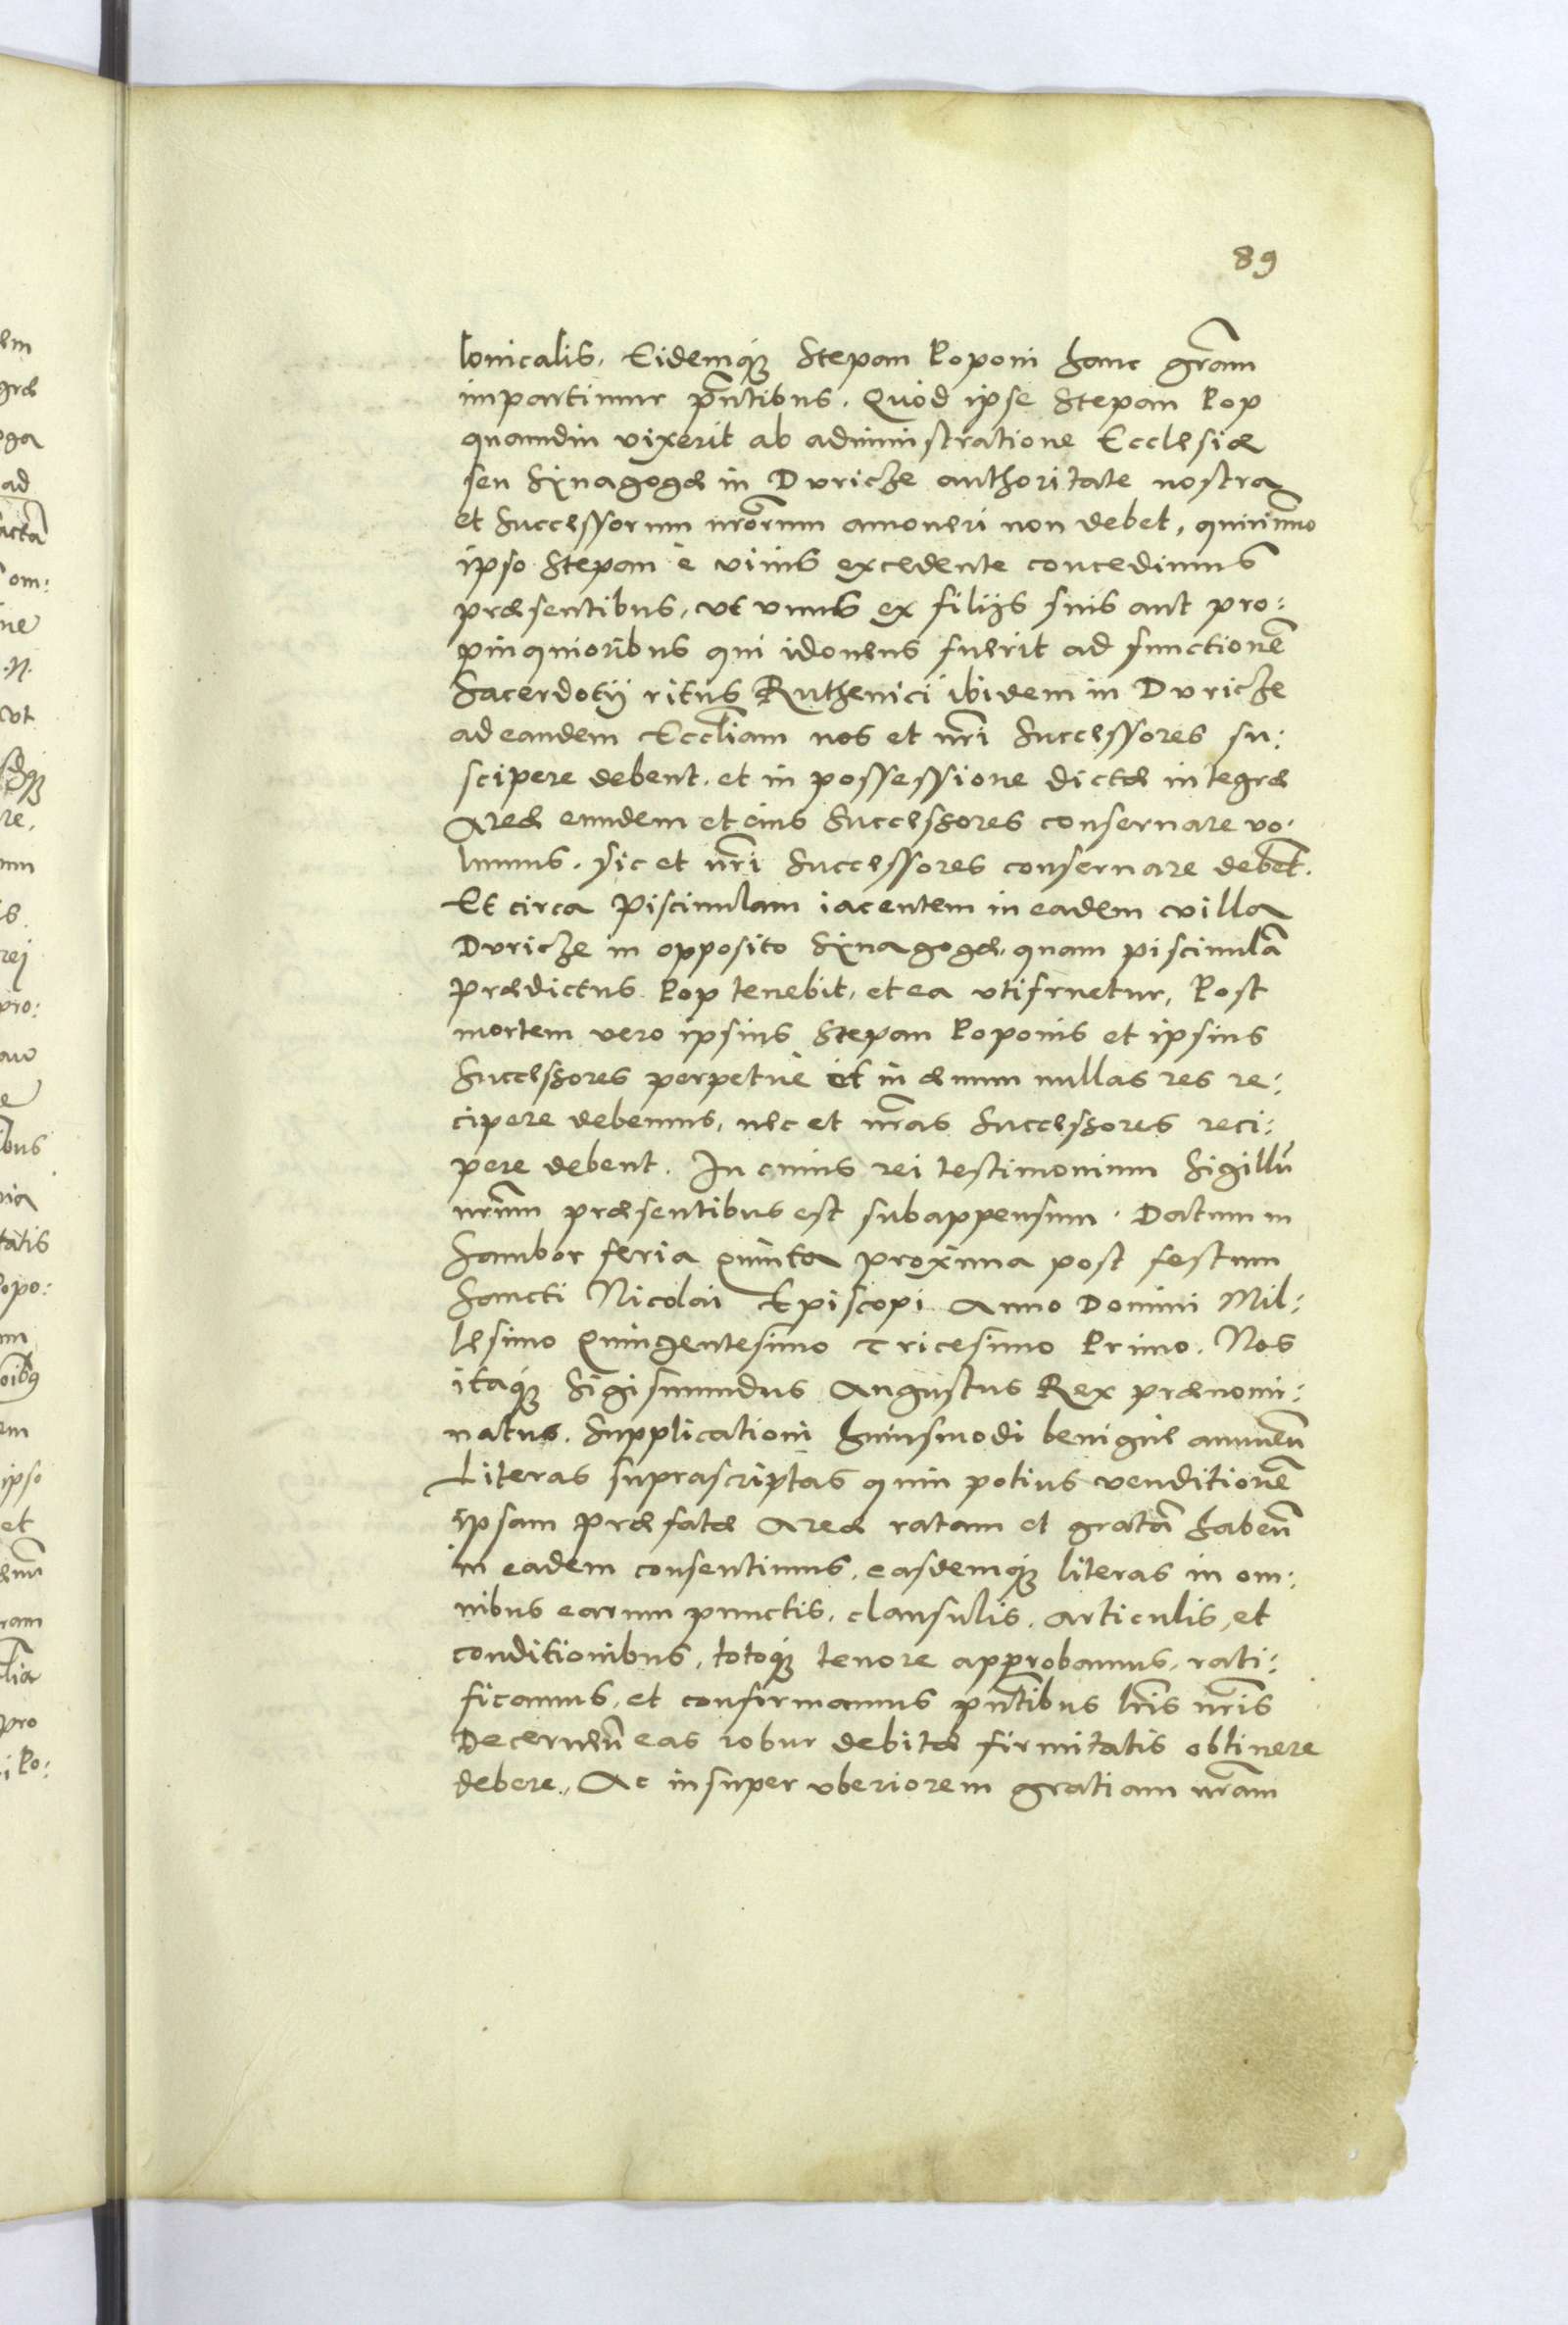 89
lonicalis. Eidemq́ꝫ Stepan Poponi hanc grãm
impartimur pñtibus. Quod ipse Stepan Pop
quamdiu vixerit ab administratione Ecclesiæ
seu Sÿnagogæ in Duricze authoritate nostra
et Successorum nrõrum amoueri non debet, quinimmo
ipso Stepan è viuis excedente concedimus
præsentibus, vt vnus ex filijs suis aut pro:
pinquioribus qui idoneus fuerit ad functionẽ
Sacerdotij ritus Ruthenici ibidem in Duricze
ad eandem Eccl̃iam nos et nr̃i Successores su:
scipere debent. et in possessione dictæ integræ
Areæ eundem et eius Successores conseruare vo:
lumus. sic et nr̃i Successores conseruare debẽt.
Et circa Piscinulam iacentem in eadem villa
Duricze in opposito Sÿnagogæ, quam piscinulã
Prædictus Pop tenebit, et ea vtifruetur, Post
mortem vero ipsius Stepan Poponis et ipsius
Successores perpetuè et in æuum nullas res re:
cipere debemus, nec et nr̃as Successores reci:
pere debent. In cuius rei testimonium Sigillũ
nrũm præsentibus est subappensum. Datum in
Sambor feria quinta proxima post festum
Sancti Nicolai Episcopi Anno Domini Mil:
lesimo Quingentesimo Tricesimo Primo. Nos
itaq́ꝫ Sigismundus Augustus Rex prænomi:
natus. Supplicationi huiusmodi benignè annueñ
Literas suprascriptas quin potius venditionẽ
ipsam præfatæ Areæ ratam et gratã habeñ
in eadem consentimus. easdemq́ꝫ literas in om:
nibus earum punctis, clausulis, articulis, et
conditionibus, totoq́ꝫ tenore approbamus, rati:
ficamus, et confirmamus pñtibus lr̃is nr̃is
Decerneñ eas robur debitæ firmitatis obtinere
debere. Ac insuper vberiorem gratiam nrãm